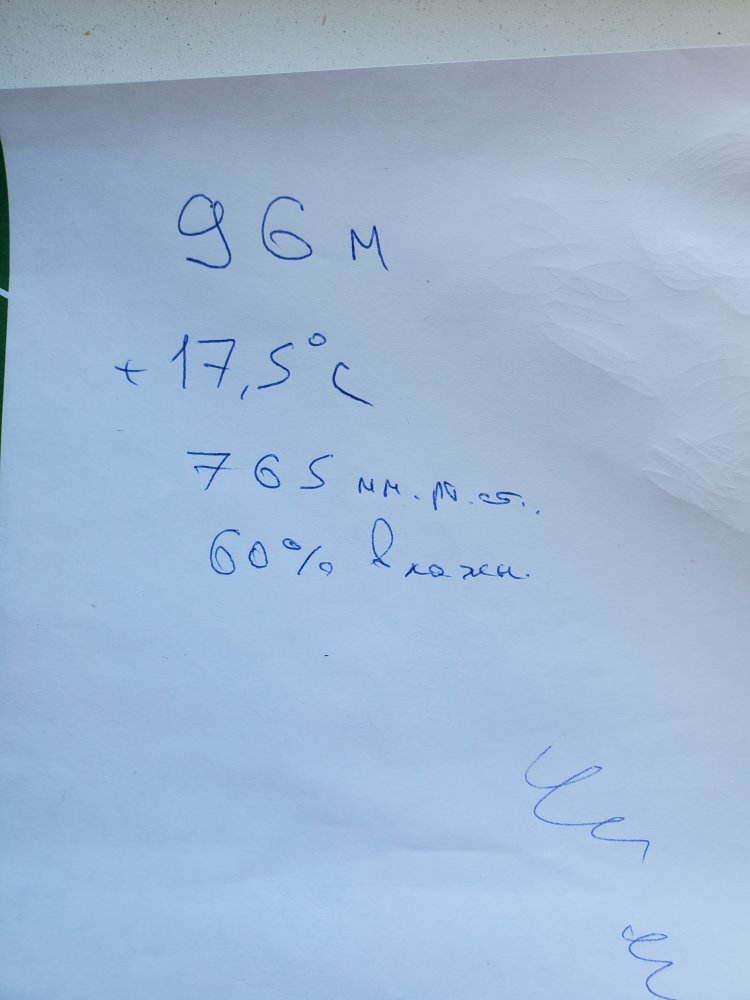 96 м
+17,5°С
765 мм.рт.ст.
60% влажн.